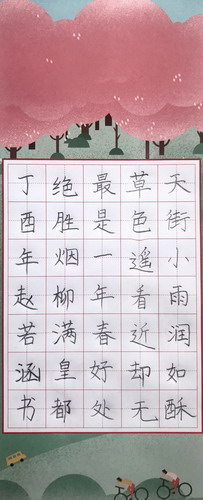 天街小雨润如酥
草色遥看近却无
最是一年春好处
绝胜烟柳满皇都
丁酉年赵若涵书